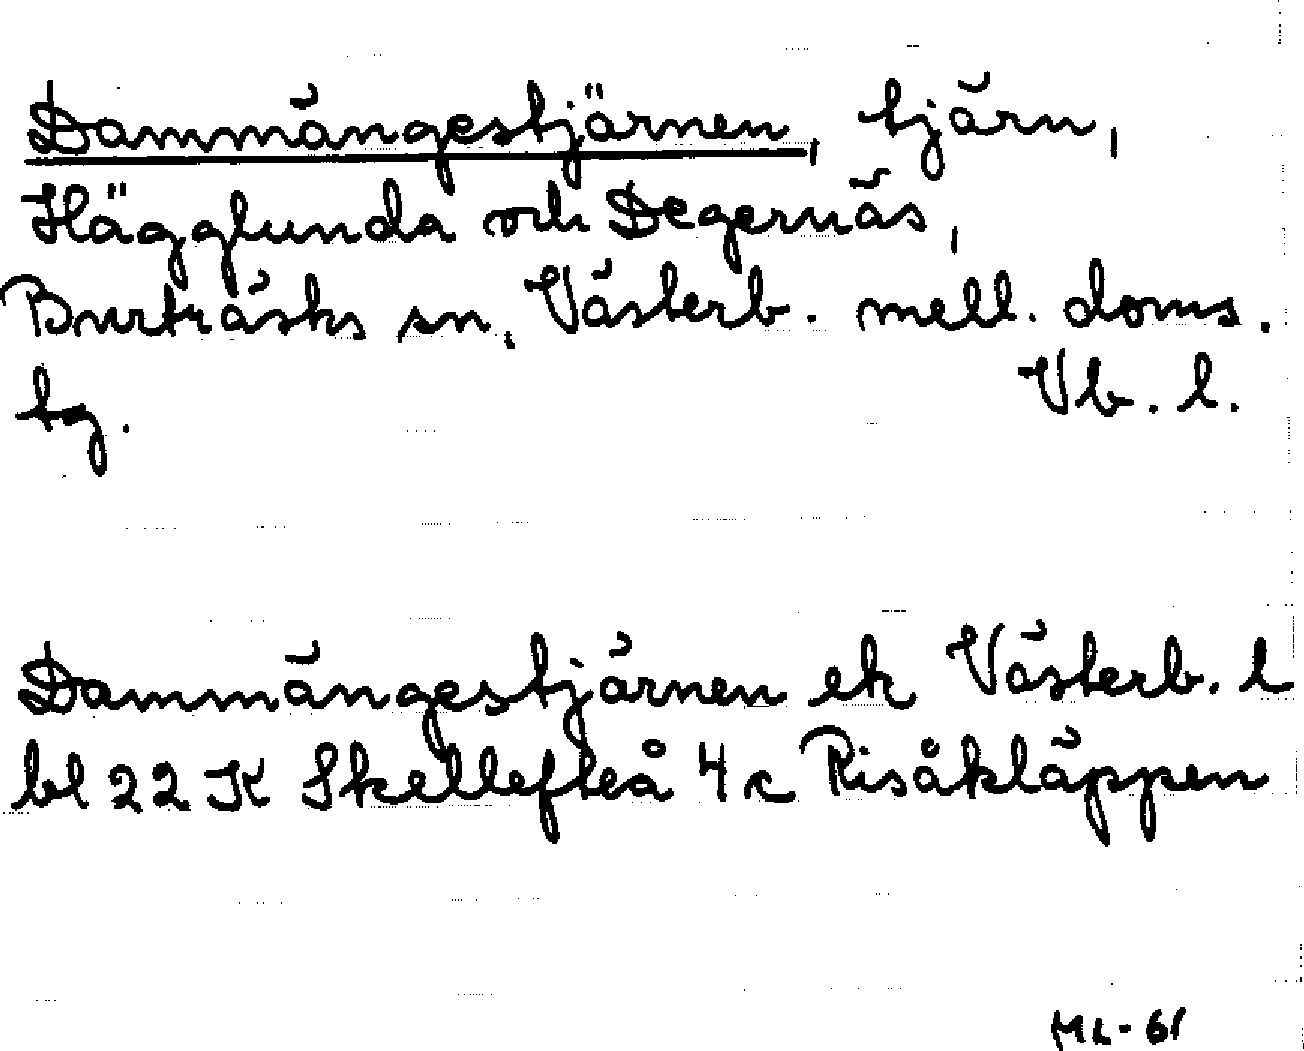 Dammängestjärnen, tjärn,
Hägglunda och Degernäs,
Burträsks sn, Västerb. mell. doms.
tg. Vb. l.
Dammängestjärnen ek Västerb. l
bl 22 K Skellefteå 4 c Risåkläppen
ML-61